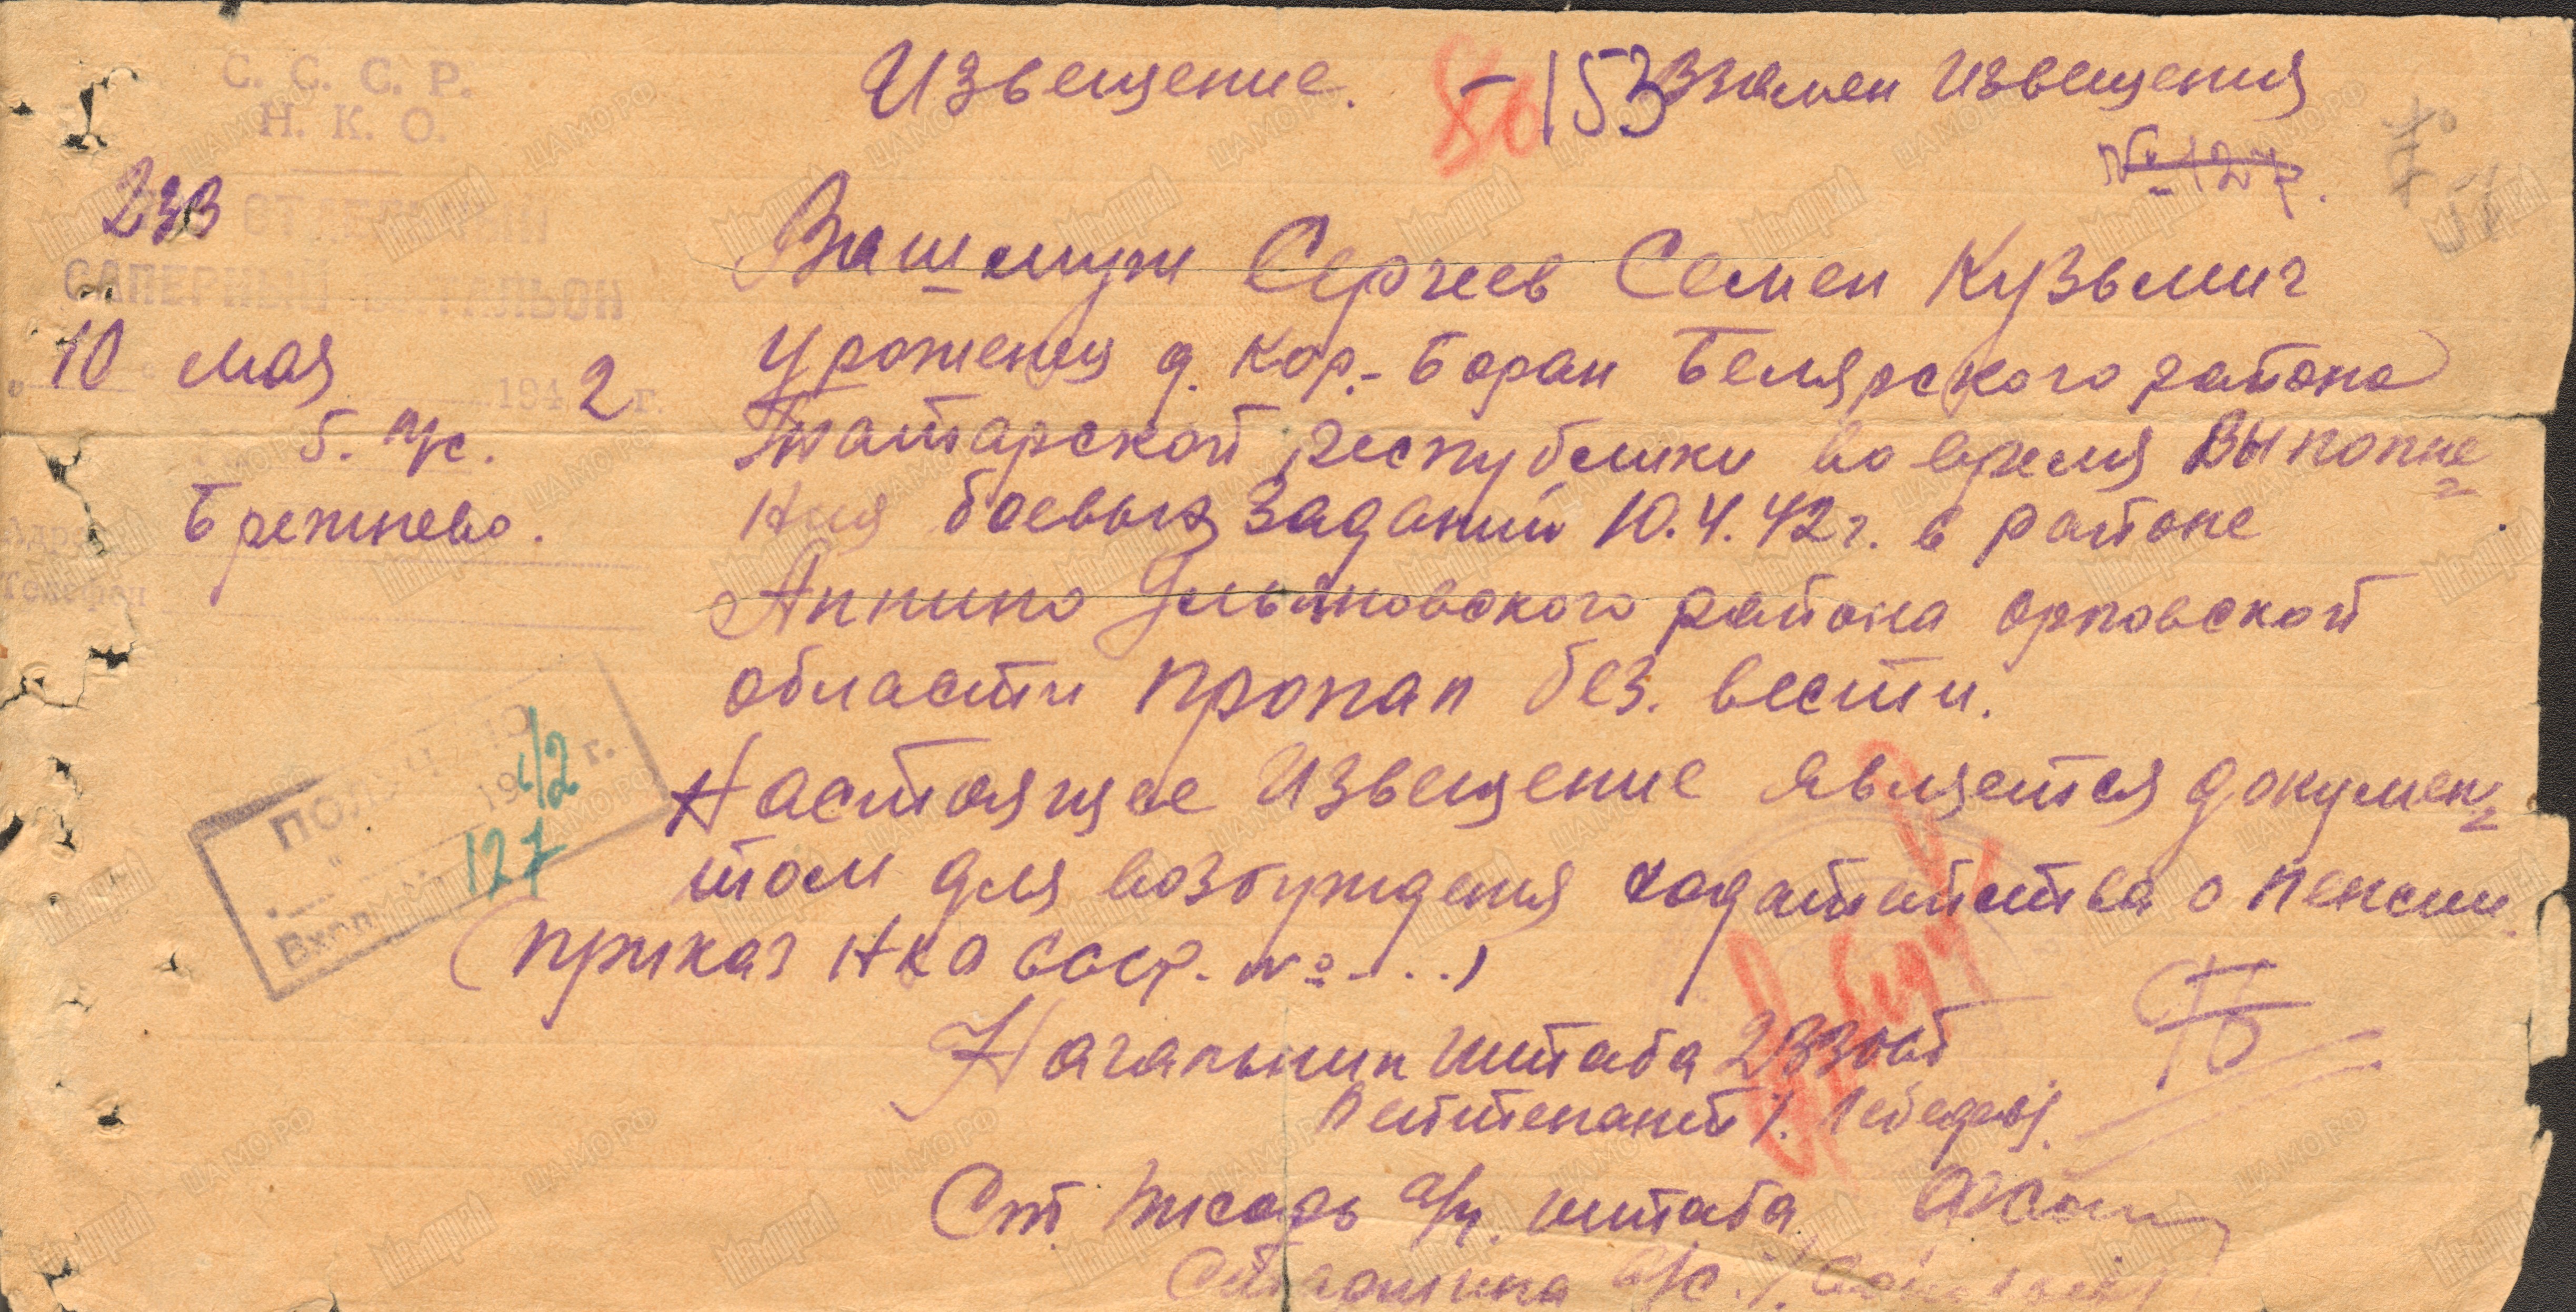 С. С. С. Р.
Н. К. О.
233
ОТДЕЛЬНЫЙ
САПЕРНЫЙ БАТАЛЬОН
"10" мая 1942 г.
Брежнево.
Адрес
Телефон
Извещение.
-153
Взамен извещения
№ 127.
Ваш муж Сергеев Семен Кузьмич
уроженец д. Кор.-Баран Белярского района
Татарской республики во время выполне
ния боевых заданий 10.4.42 г. в районе
Аннино Ульяновского района орловской
области пропал без. вести.
Настоящее извещение является докумен-
том для возбуждения ходатайства о пенсии.
(приказ НКО СССР. № - ...)
Начальник штаба 233 осб
Лейтенант /. Лебедев/.
Ст. писарь штаба
Старшина
ПОЛУЧЕНО
1942 г.
Вход. № 127